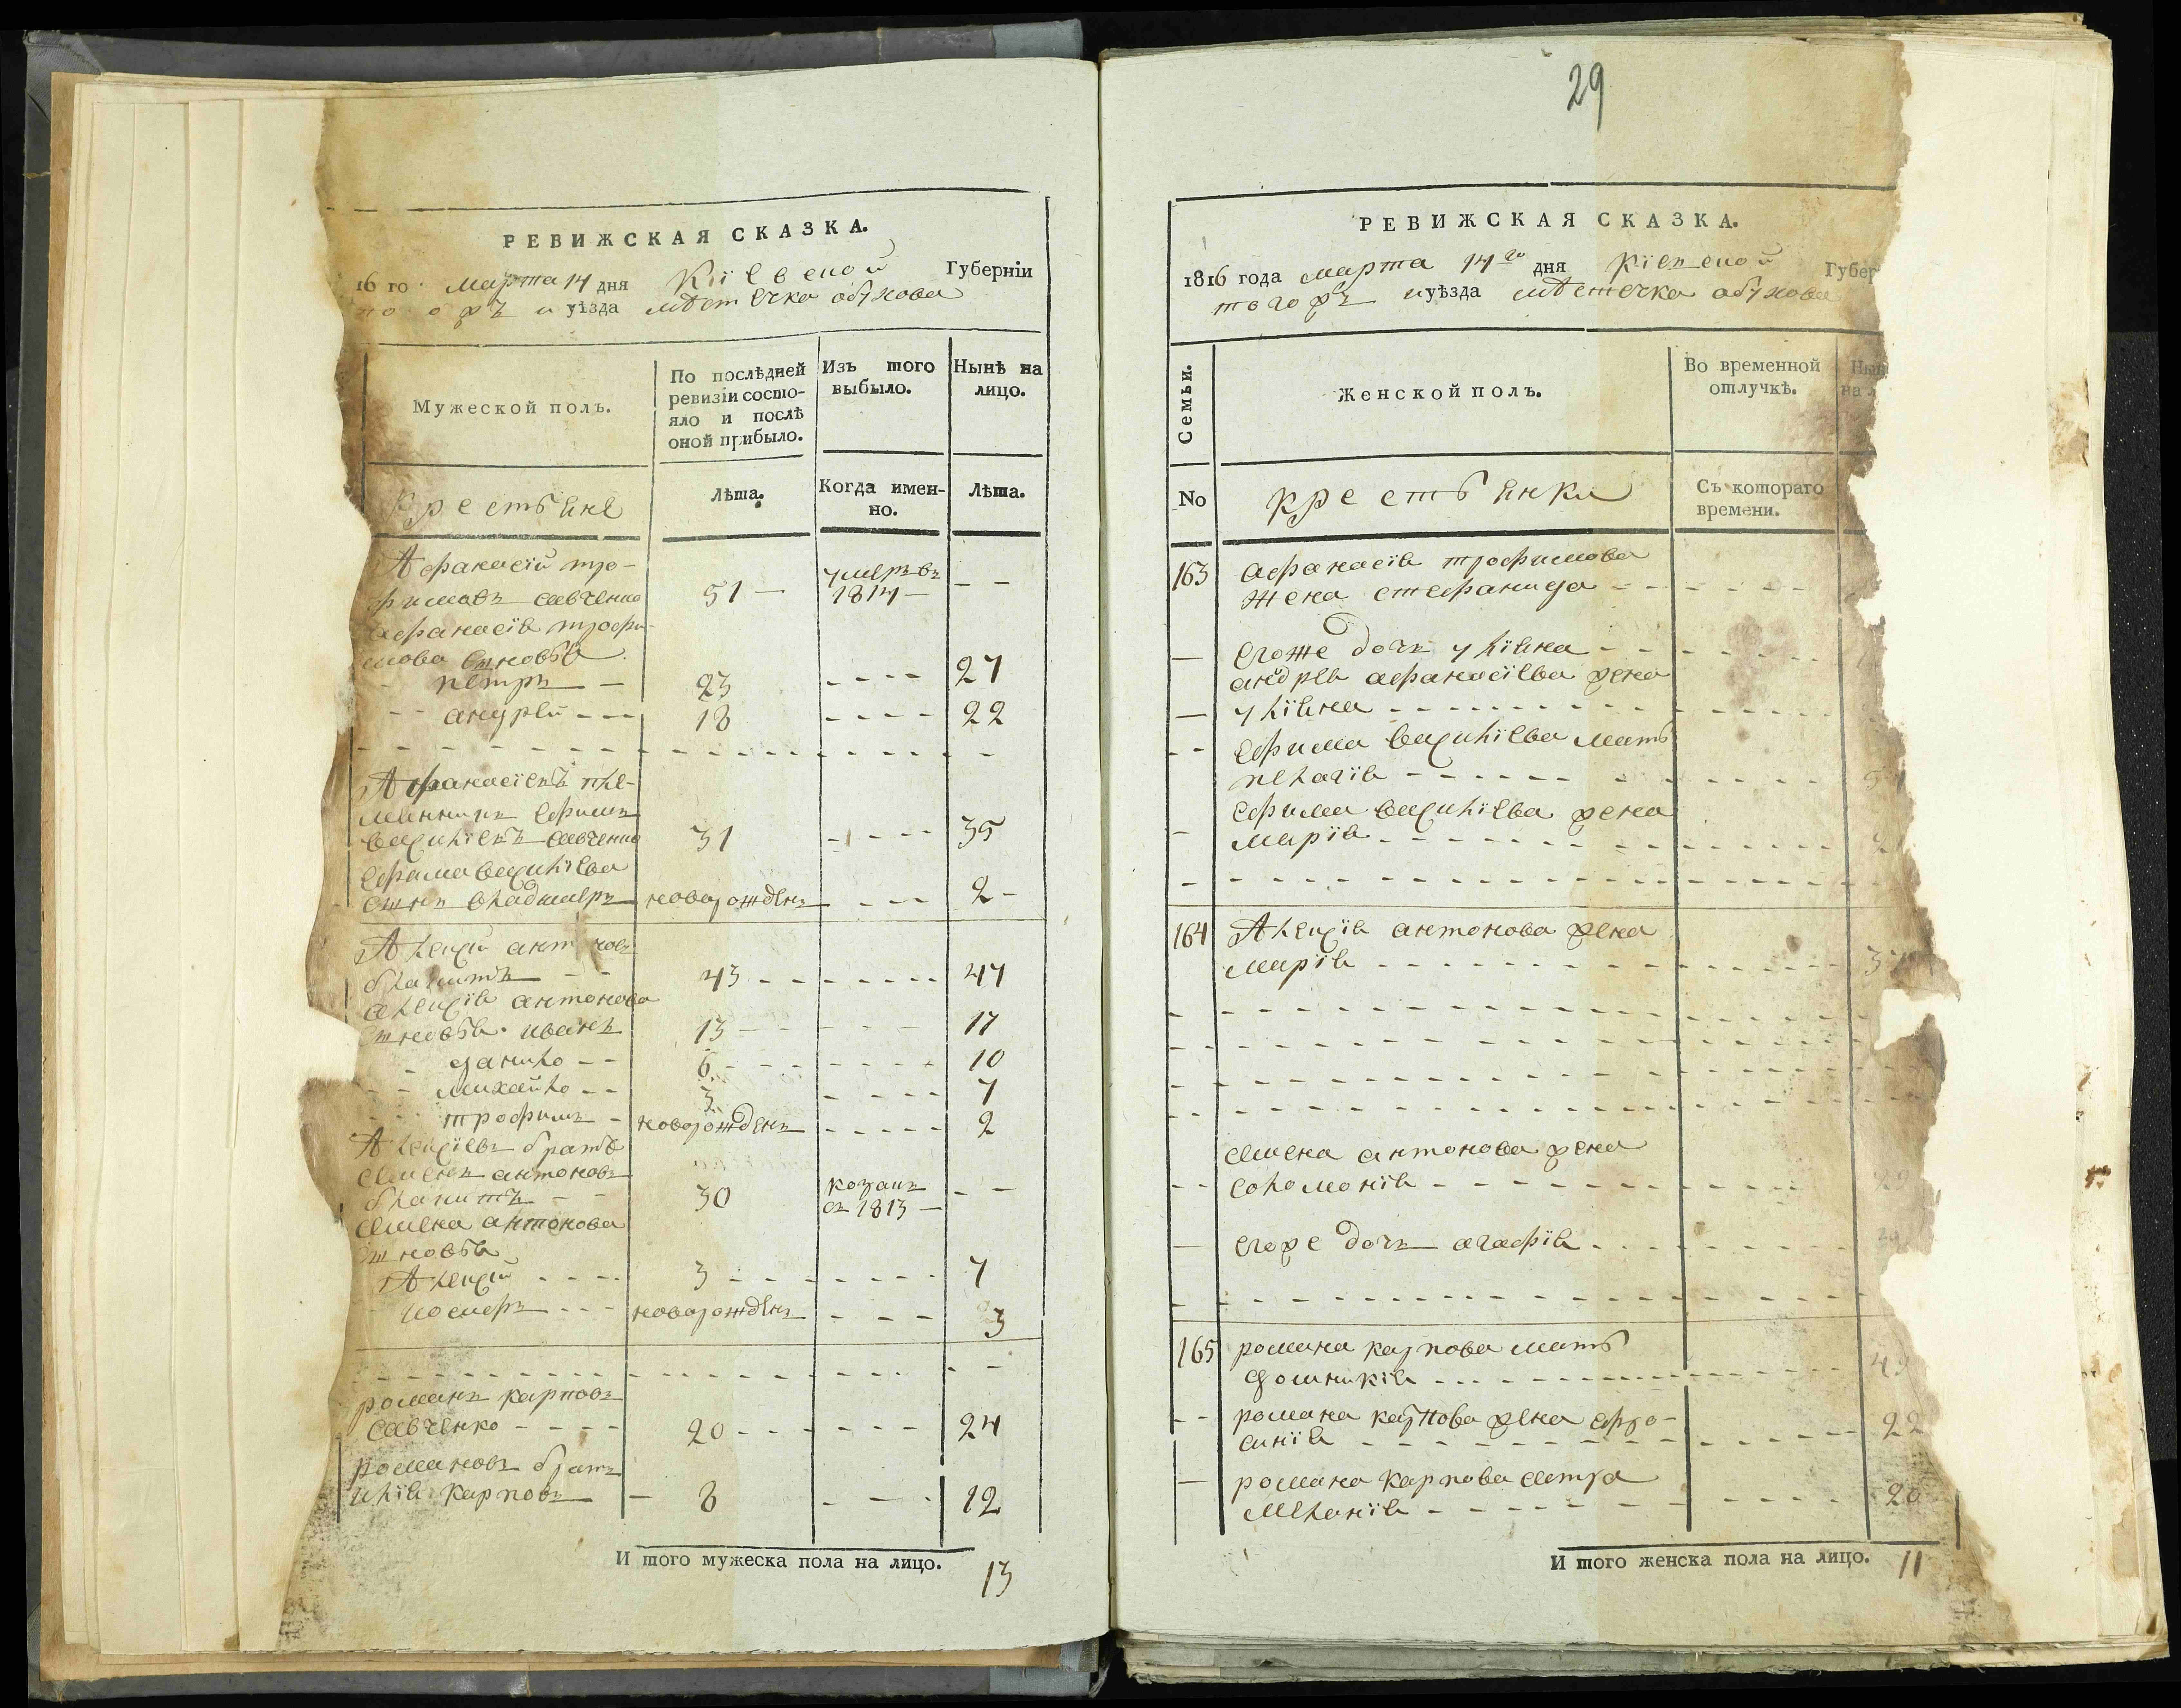 РЕВИЖСКАЯ СКАЗКА.
16 го марта 14 дня Кіевской Губерніи
уѣзда мѣстечка обухова
Мужеской полъ.
По послѣдней ревизіи состо-
яло и послѣ
оной прибыло.
Изъ того
выбыло.
Нынѣ на
лицо.
крестьяне
Лѣта.
Когда имен-
но.
Лѣта.
Афанасій тро-
фимовъ савченко 51 — умеръ въ 1814 — - -
афанасія трофи-
мова сыновья
петръ — 23 - - - - 27
андрей - - - 18 - - - - 22
Афанасіевъ пле-
мянникъ ефимъ
василіевъ савченко 31 - - - - 35
ефима василіева
сынъ владимеръ новорожденъ - - - 2 -
Алексѣй
43 - - - - 47
антонова
сыновья иванъ 13 - - - - 17
данило - - 6 - - - - 10
михайло - - 3 - - - - 7
трофимъ - новорожденъ - - - - 2
братъ
семенъ антоновъ
30 козакъ съ 1813 — - -
семена антонова
сыновья
3 - - - - 7
іосифъ - - - новорожденъ - - - 3
романъ карповъ
савченко - - - - 20 - - - - 24
романовъ братъ
илія карповъ — 8 - - - 12
И того мужеска пола на лицо. 13
29
РЕВИЖСКАЯ СКАЗКА.
1816 года марта 14го дня кіевской Губер
тогожъ и уѣзда мѣстечка обухова
Семьи.
Женской полъ.
Во временной
отлучкѣ.
Нын
на л
No
крестьянки
Съ котораго
времени.
163 афанасія трофимова
жена стефанида - - - - - -
— егоже дочь уліяна - - - - - -
андрея афанасіева жена
— уліяна - - - - - - - -
- - ефима василіева мать
пелагія - - - - - -
ефима василіева жена
- марія - - - - - - -
164 антонова жена
марія - - - - - - - -
семена антонова жена
- - соломонія - - - - - - - 29
— егоже дочь агафія - - - -
165 романа карпова мать
домникія - - - - - - 49
- - романа карпова жена афро-
синія - - - - - - - 22
— романа карпова сестра
меланія - - - - - - 20
И того женска пола на лицо. 11